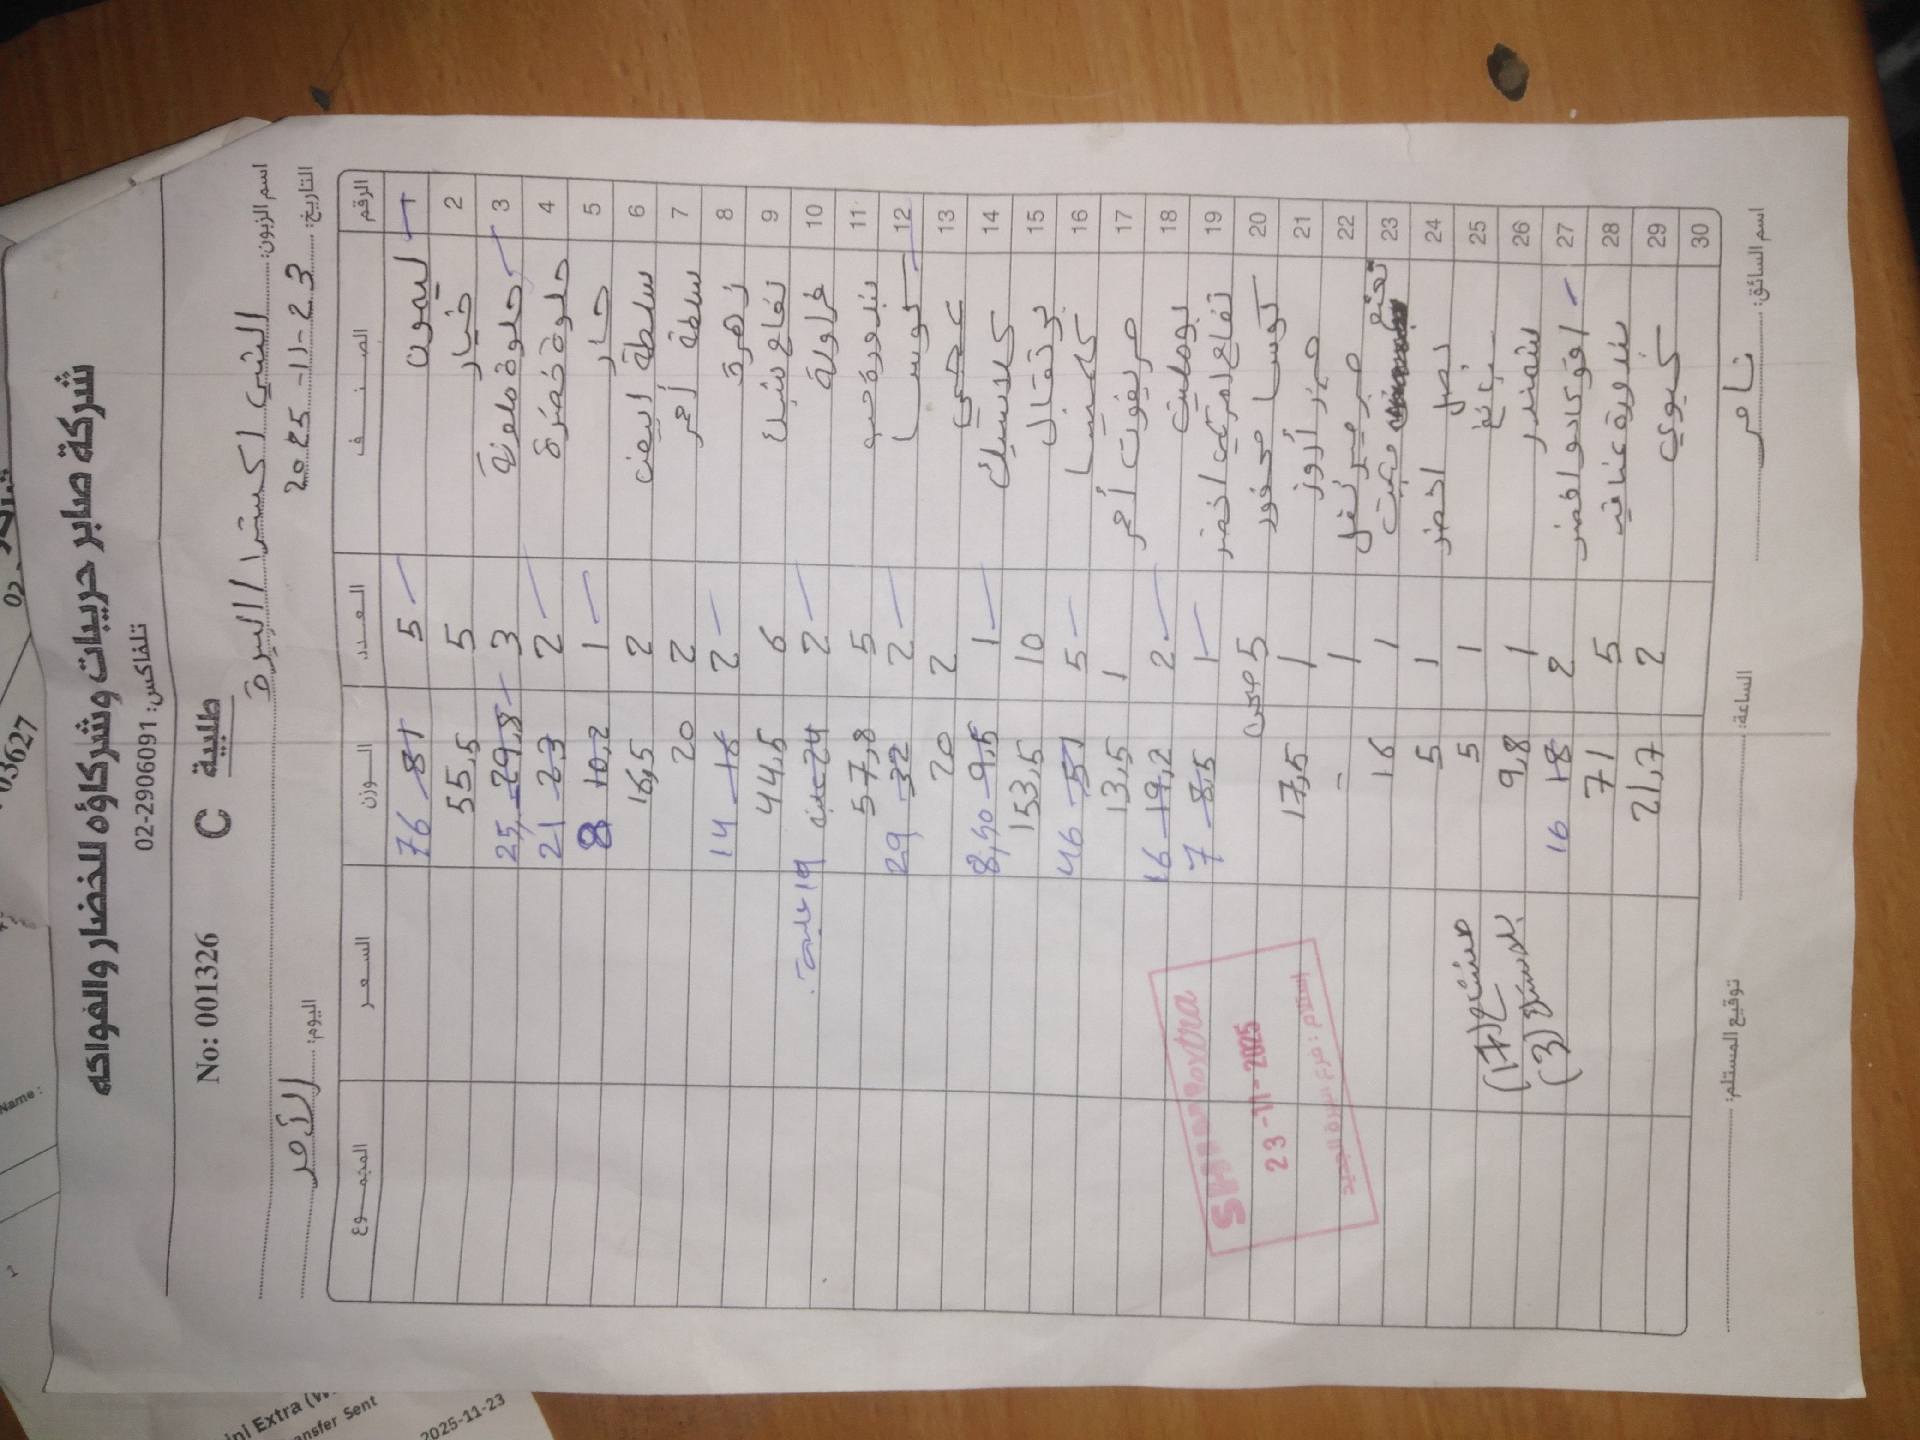 شركة صابر حريبات وشركاؤه للخضار والفواكه
تلفاكس: 02-2906091
No: 001326 C طلبية
اسم الزبون: الشني اكسترا / البيرة
التاريخ: 2025-11-23 اليوم: الأحد
الرقم الصنف العدد الوزن السعر المجموع
1 ليمون 5 81 76
2 خيار 5 55,5
3 حلوة ملونة 3 29,8 25
4 حلوة خضرة 2 23 21
5 حار 1 10,2 8
6 سلطة ابيض 2 16,5
7 سلطة أحمر 2 20
8 زهرة 2 16 14
9 تفاح 6 44,5
10 فراولة 2 24 علبة 19 علبة
11 بندورة حب 5 57,8
12 كوسا 2 32 29
13 2 20
14 كلاسيك 1 9,5 8,40
15 برتقال 10 153,5
16 كلمنسا 5 51 46
17 جريفوت أحمر 1 13,5
18 بوملي 2 19,2 16
19 تفاح امريكي اخضر 1 8,5 7
20 كوسا محفور 5 صحن
21 1 17,5
22 1 -
23 1 16
24 بصل اخضر 1 5
25 1 5
26 شمندر 1 9,8
27 افوكادو اخضر 2 18 16
28 بندورة عناقيد 5 71
29 كيوي 2 21,7
30
(17)
(3)
SHINI extra
23-11-2025
استلام : فرع البيرة الجديد
اسم السائق: تامر الساعة: توقيع المستلم:
03627
Name :
1
ini Extra
ansfer Sent
2025-11-23